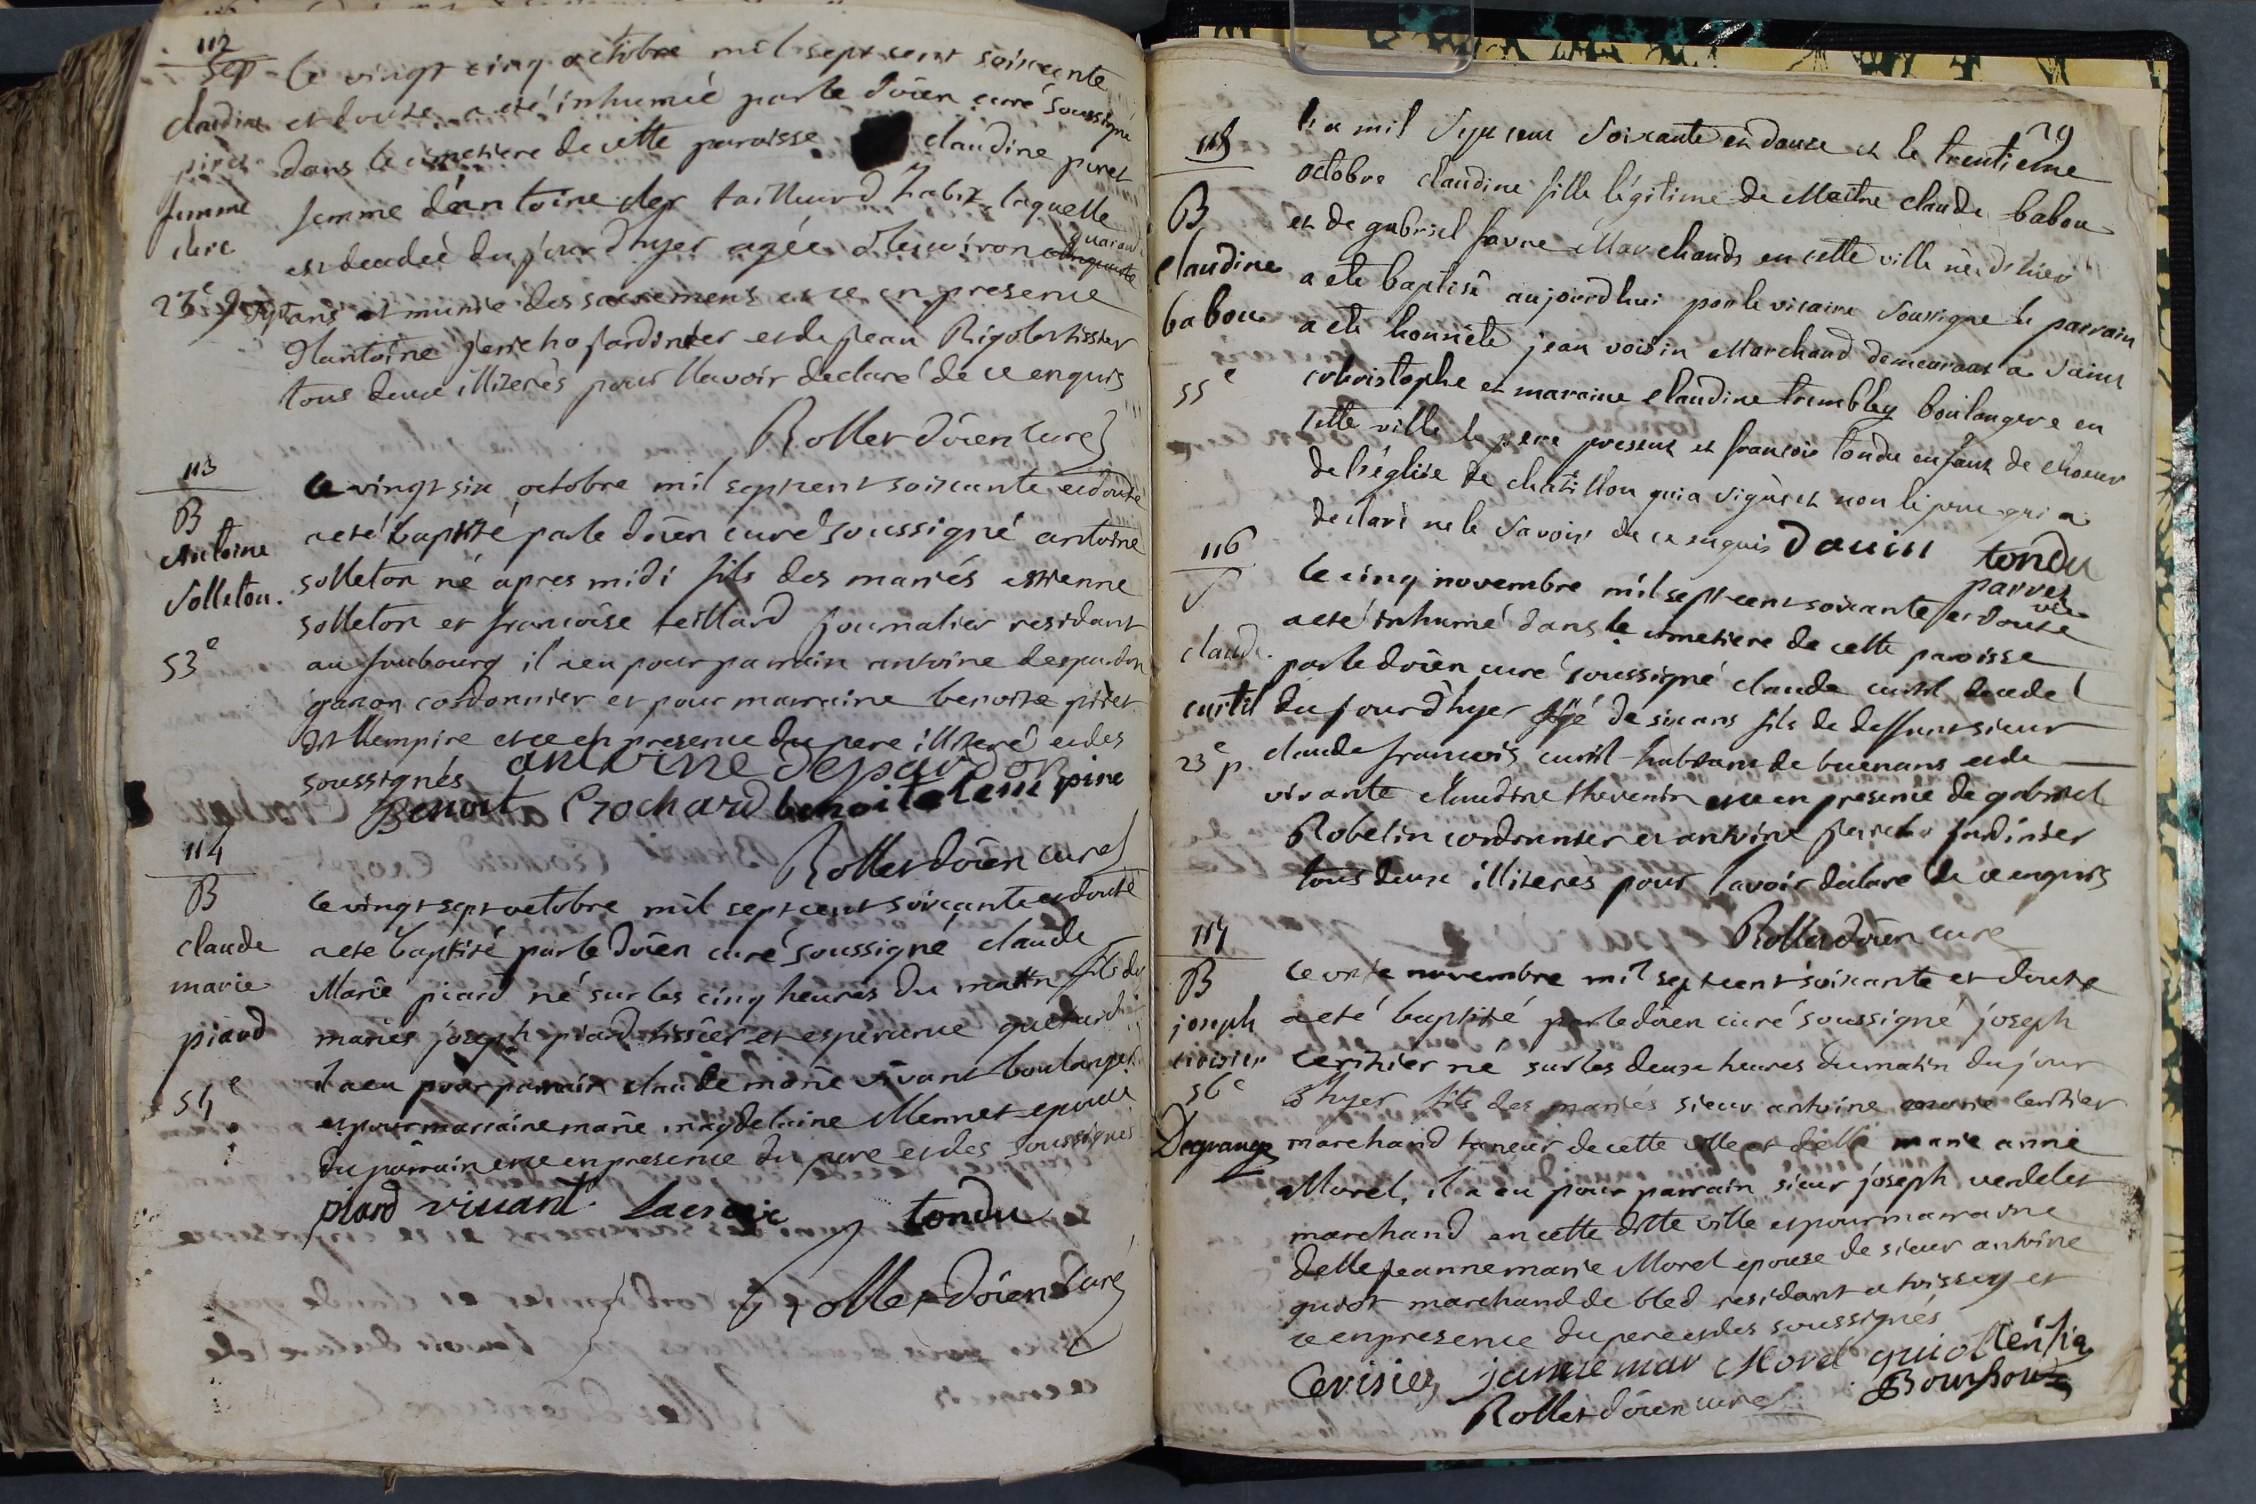 112
Sep
claudine
piret
femme
clere
Le vingt cinq octobre mil sept cent soixante
et douze a eté inhumée par le doïen curé soussigné
dans le cimetiere de cette paroisse claudine piret
femme d'antoine cler tailleur d'habit, laquelle
est decedée du jour d'hyer agée d'environ quarante
ans et munie des sacremens et ce en presence
d'antoine jericho jardinier et de jean Rigolet tissier
tous deux illiterés pour l'avoir declaré de ce enquis
Rollet doïen curé
113
B
Antoine
Solleton.
53e
Le vingt six octobre mil sept cent soixante et douze
a eté baptisé par le doïen curé soussigné antoine
solleton né apres midi fils des mariés estienne
solleton et francoise teillard journalier residant
au foubourg il a eu pour parrain antoine despardon
garcon cordonnier et pour marraine benoite piret
dit l'empire et ce en presence du pere illiteré et des
soussignés antoine despardon
Benoit Crochard benoite lem pire
Rollet doïen curé
114
B
claude
marie
piard
54e
Le vingt sept octobre mil sept cent soixante et douze
a eté baptisé par le doïen curé soussigné claude
Marie piard né sur les cinq heures du matin fils des
mariés joseph piard tissier et esperance
il a eu pour parrain claude marie vivant boulanger
et pour marraine marie magdelaine Mennet epouse
du parrain et ce en presence du pere et des soussignés
piard vivant Lacroix tondu
Rollet doïen Curé
29
115
B
claudine
babou
55e
L'an mil Sept cent Soixante et douze et le trentieme
octobre claudine fille légitime de Maitre claude babou
et de gabriel favre Marchands en cette ville née d'hier
a ete baptisé aujourdhui par le vicaire Soussigné le parrain
a ete honnête jean voisin Marchand demeurant a Saint
christophe et maraine claudine trembley boulangere en
cette ville le pere present et francois tondu enfant de choeur
de l'église de chatillon qui a signé et non le pere qui a
declaré ne le Savoir de ce enquis Dauin tondu
116
S
claude
curtil
23e p
Le cinq novembre mil sept cent soixante et douze
a eté inhumé dans le cimetiere de cette paroisse
par le doïen curé soussigné claude curtil decedé
du jour d'hyer agé de six ans fils de deffunt sieur
claude francois curtil habitant de buenans et de
vivante claudine thevenin et ce en presence de gabriel
Robelin cordonnier et antoine jericho jardinier
tous deux illiterés pour l'avoir declaré de ce enquis
Rollet doïen curé
117
B
joseph
cirisier
56e
Degrange
Le onze novembre mil sept cent soixante et douze
a eté baptisé par le doïen curé soussigné joseph
cerisier né sur les deux heures du matin du jour
d'hyer fils des mariés sieur antoine marie cerisier
marchand taneur de cette ville et delle marie anne
Morel, il a eu pour parrain sieur joseph verdelet
marchand en cette ditte ville et pour marraine
delle jeanne marie Morel epouse de sieur antoine
guiot marchand de bled residant a toissey et
ce en presence du pere et des soussignés
Cerisier jeanne mar Morel guiot
Rollet doïen curé